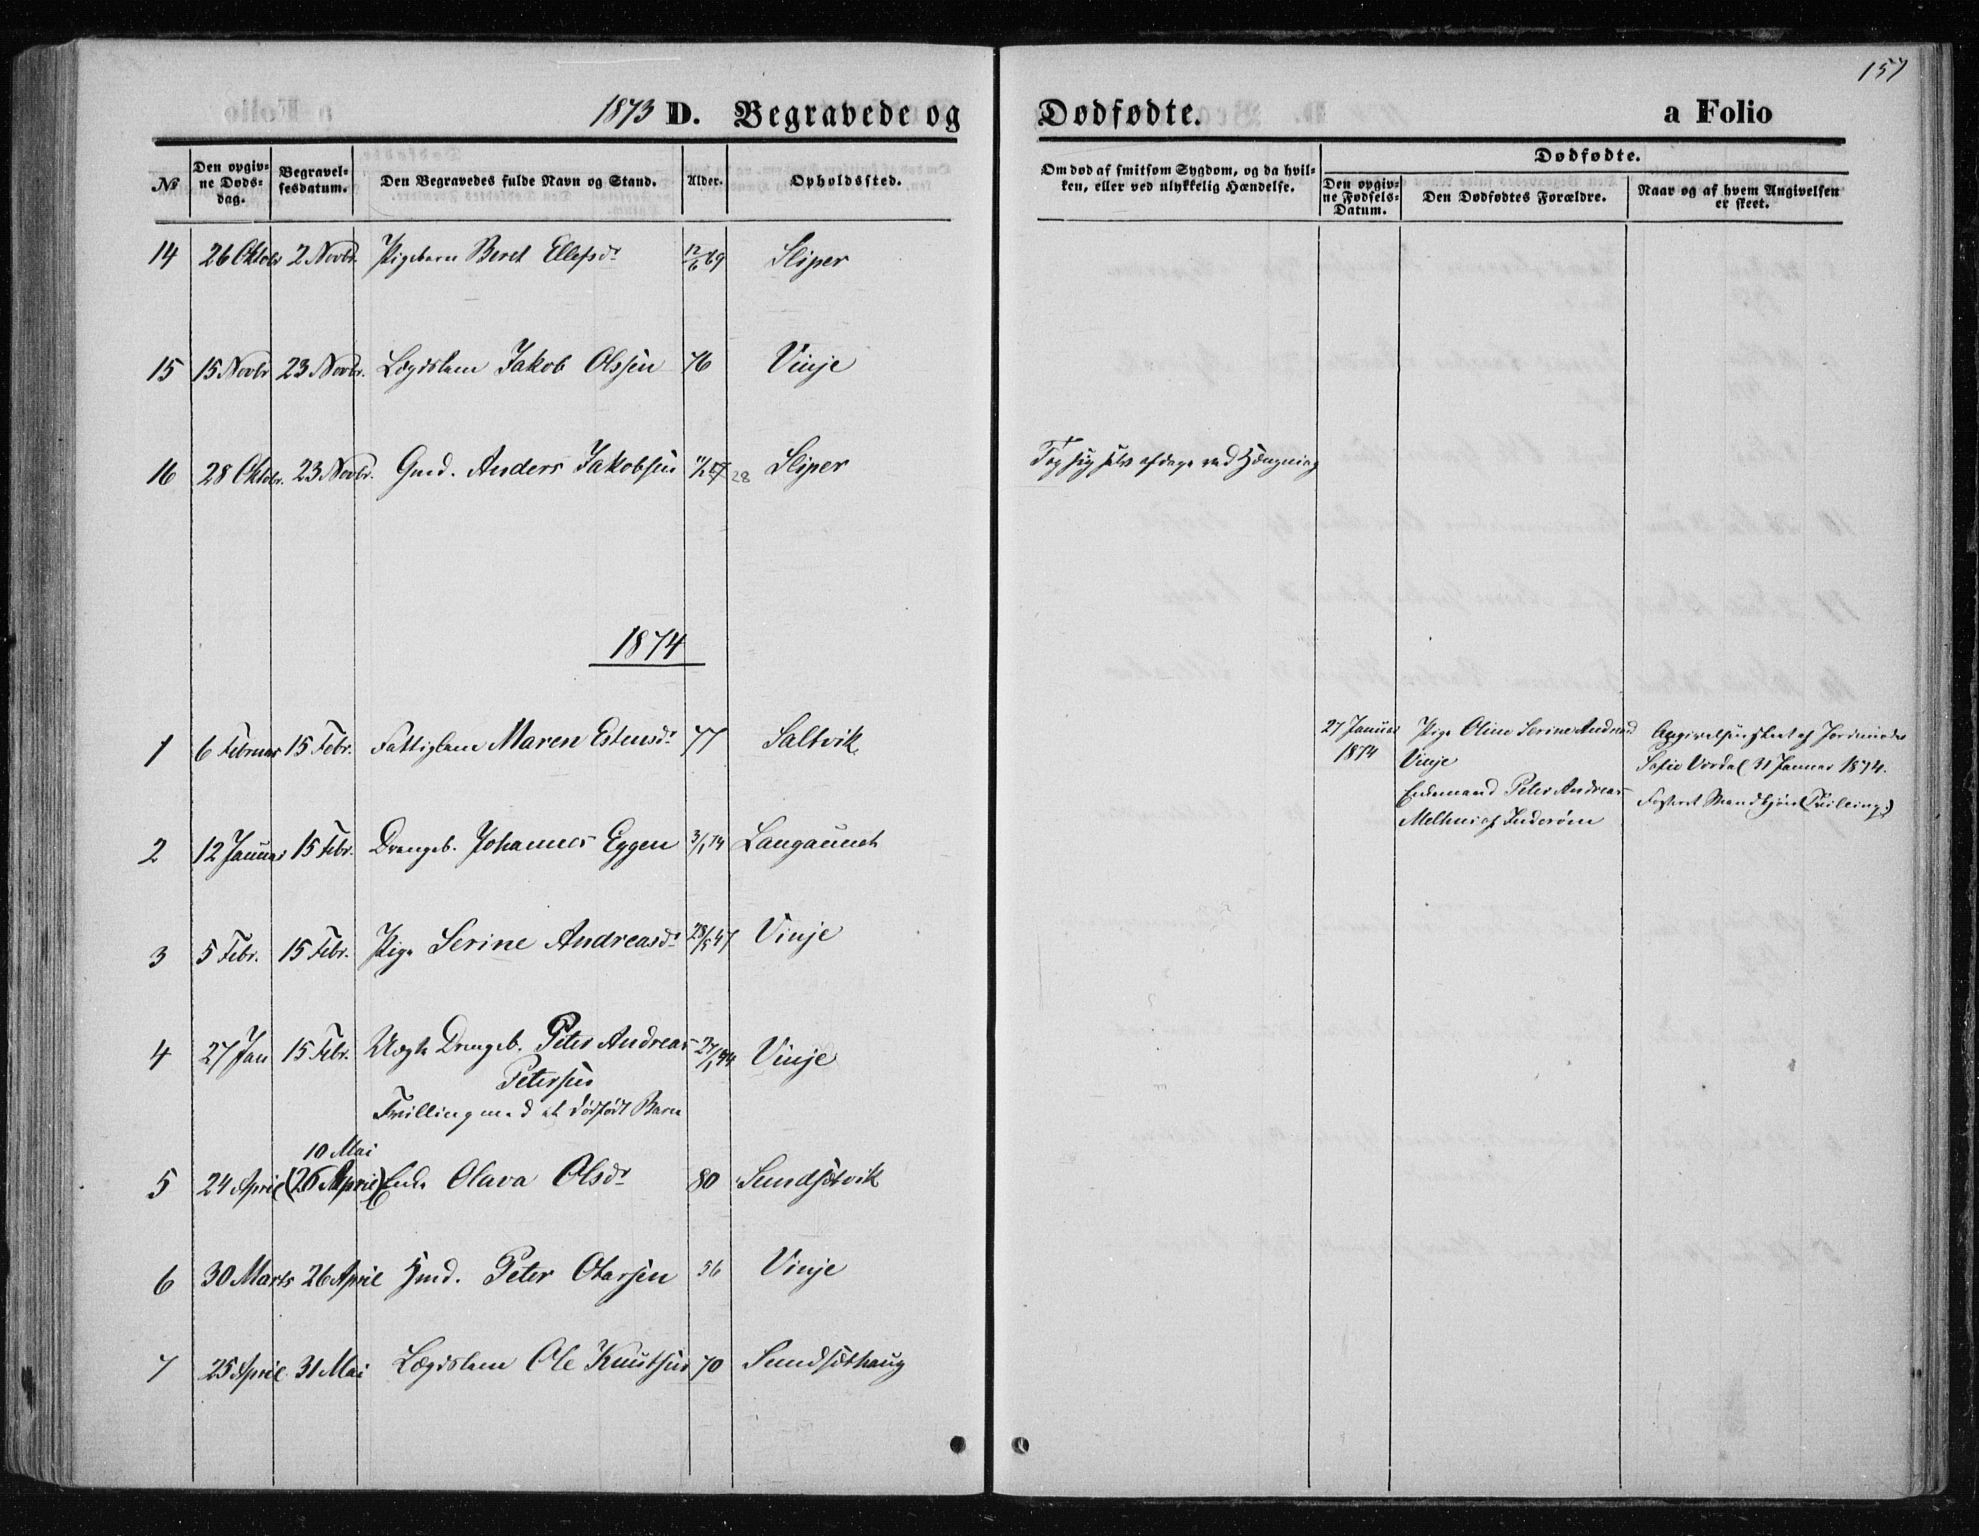 157
1873 D. Begravede og Dødfødte. a Folio
№ Den opgivne Døds-dag. Begravelsesdatum. Den Begravedes fulde Navn og Stand. Alder. Opholdssted. Om død af smitsom Sygdom, og da hvilken, eller ved ulykkelig Hændelse. Dødfødte. Den opgivne Fødsels-Datum. Den Dødfødtes Forældre. Naar og af hvem Angivelsen er skeet.
14 26 Oktobr 2 Novbr. Pigebarn Beret Ellefsdr 12/6 69 Sliper
15 15 Novbr 23 Novbr. Lægdslem Jakob Olssen 76 Vinje
16 28 Oktobr. 23 Novbr. Gmd. Anders Jakobsen 28 Sliper Tog sig selv afdage ved Hængning
1874
1 6 Februar 15 Febr. Fattiglem Maren Estensdr 77 Saltvik
27 Januar 1874
Pige Oline Serine Andreasd
Vinje
Enkemand Peter Andreas
Melhus af Inderøen
Angivelsen skeet af Jordmoder
Sofie Vordal 31 Januar 1874.
Fosteret Mandkjøn (Tvilling)
2 12 Januar 15 Febr. Drengeb. Johannes Eggen 3/1 74 Langaunet
3 5 Febr. 15 Febr. Pige Serine Andreasdr 28/5 47 Vinje
4 27 Jan 15 Febr. Uægte Drengeb. Peter Andreas 27/1 74 Vinje
Petersen
Tvilling med et dødfødt Barn
10 Mai
5 24 April (26 April) Enke Olava Olsdr 80 Sundsetvik
6 30 Marts 26 April Hmd. Peter Olarsen 56 Vinje
7 25 April 31 Mai Lægdslem Ole Knutsen 70 Sundsethaug